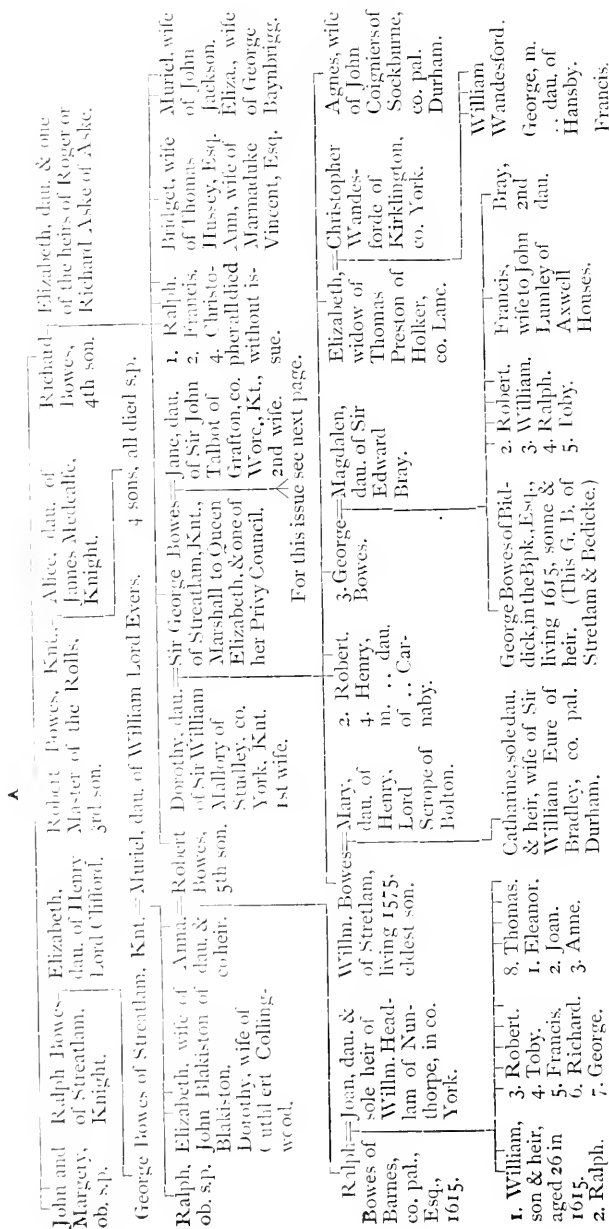 A
John and
Margery,
ob. s.p.
Ralph Bowes
of Streatlam.
Knight.
Elizabeth,
dau. of Henry
Lord Clifford.
Robert Bowes, Knt.,
Master of the Rolls,
3rd son.
Alice, dau. of
James Medcalfe,
Knight.
Richard
Bowes,
4th son.
Elizabeth, dau. & one
of the heirs of Roger or
Richard Aske of Aske.
George Bowes of Streatlam. Knt.=Muriel, dau. of William Lord Evers.
4 sons, all died s.p.
Ralph,
ob. s.p.
Elizabeth, wife of
John Blakiston of
Blakiston.
Dorothy, wife of
Cuthbert Colling-
wood.
Anna.=Robert
dau. &
coheir.
Bowes,
5th son.
Dorothy, dau.=Sir George Bowes=Jane, dau.
of Sir William
Mallory of
Studley, co.
York, Knt.
1st wife.
of Streatlam, Knt.,
Marshall to Queen
Elizabeth, & one of
her Privy Council,
of Sir John
Talbot of
Grafton, co.
Worc., Kt.,
2nd wife.
For this issue see next page.
1. Ralph.
2. Francis.
4. Christo-
pher all died
without is-
sue.
Bridget, wife
of Thomas
Hussey, Esq.
Ann, wife of
Marmaduke
Vincent, Esq.
Muriel, wife
of John
Jackson.
Eliza., wife
of George
Baynbrigg.
Ralph=Joan, dau. &
Bowes of
Barnes,
co. pal.,
Esq.,
1615.
sole heir of
Willm. Head-
lam of Nun-
thorpe, in co.
York.
Willm. Bowes=Mary,
of Stretlam,
living 1575,
eldest son.
dau. of
Henry,
Lord
Scrope of
Bolton.
2. Robert.
4. Henry,
m. .. dau.
of .. Car-
naby.
3. George=Magdalen,
Bowes.
dau. of Sir
Edward
Bray.
Elizabeth,=Christopher
widow of
Thomas
Preston of
Holker,
co. Lanc.
Wandes-
forde of
Kirklington,
co. York.
Agnes, wife
of John
Coigniers of
Sockburne,
co. pal.
Durham.
1. William,
son & heir,
aged 26 in
1615.
2. Ralph.
3. Robert.
4. Toby.
5. Francis.
6. Richard.
7. George.
8. Thomas.
1. Eleanor.
2. Joan.
3. Anne.
Catharine, sole dau.
& heir, wife of Sir
William Eure of
Bradley, co. pal.
Durham.
George Bowes of Bid-
dick, in the Bpk., Esq.,
living 1615, sonne &
heir. (This G. B. of
Stretlam & Bedicke.)
2. Robert.
3. William.
4. Ralph.
5. Toby.
Francis,
wife to John
Lumley of
Axwell
Houses.
Bray,
2nd
dau.
William
Wandesford.
George, m.
.. dau. of
Hansby.
Francis.